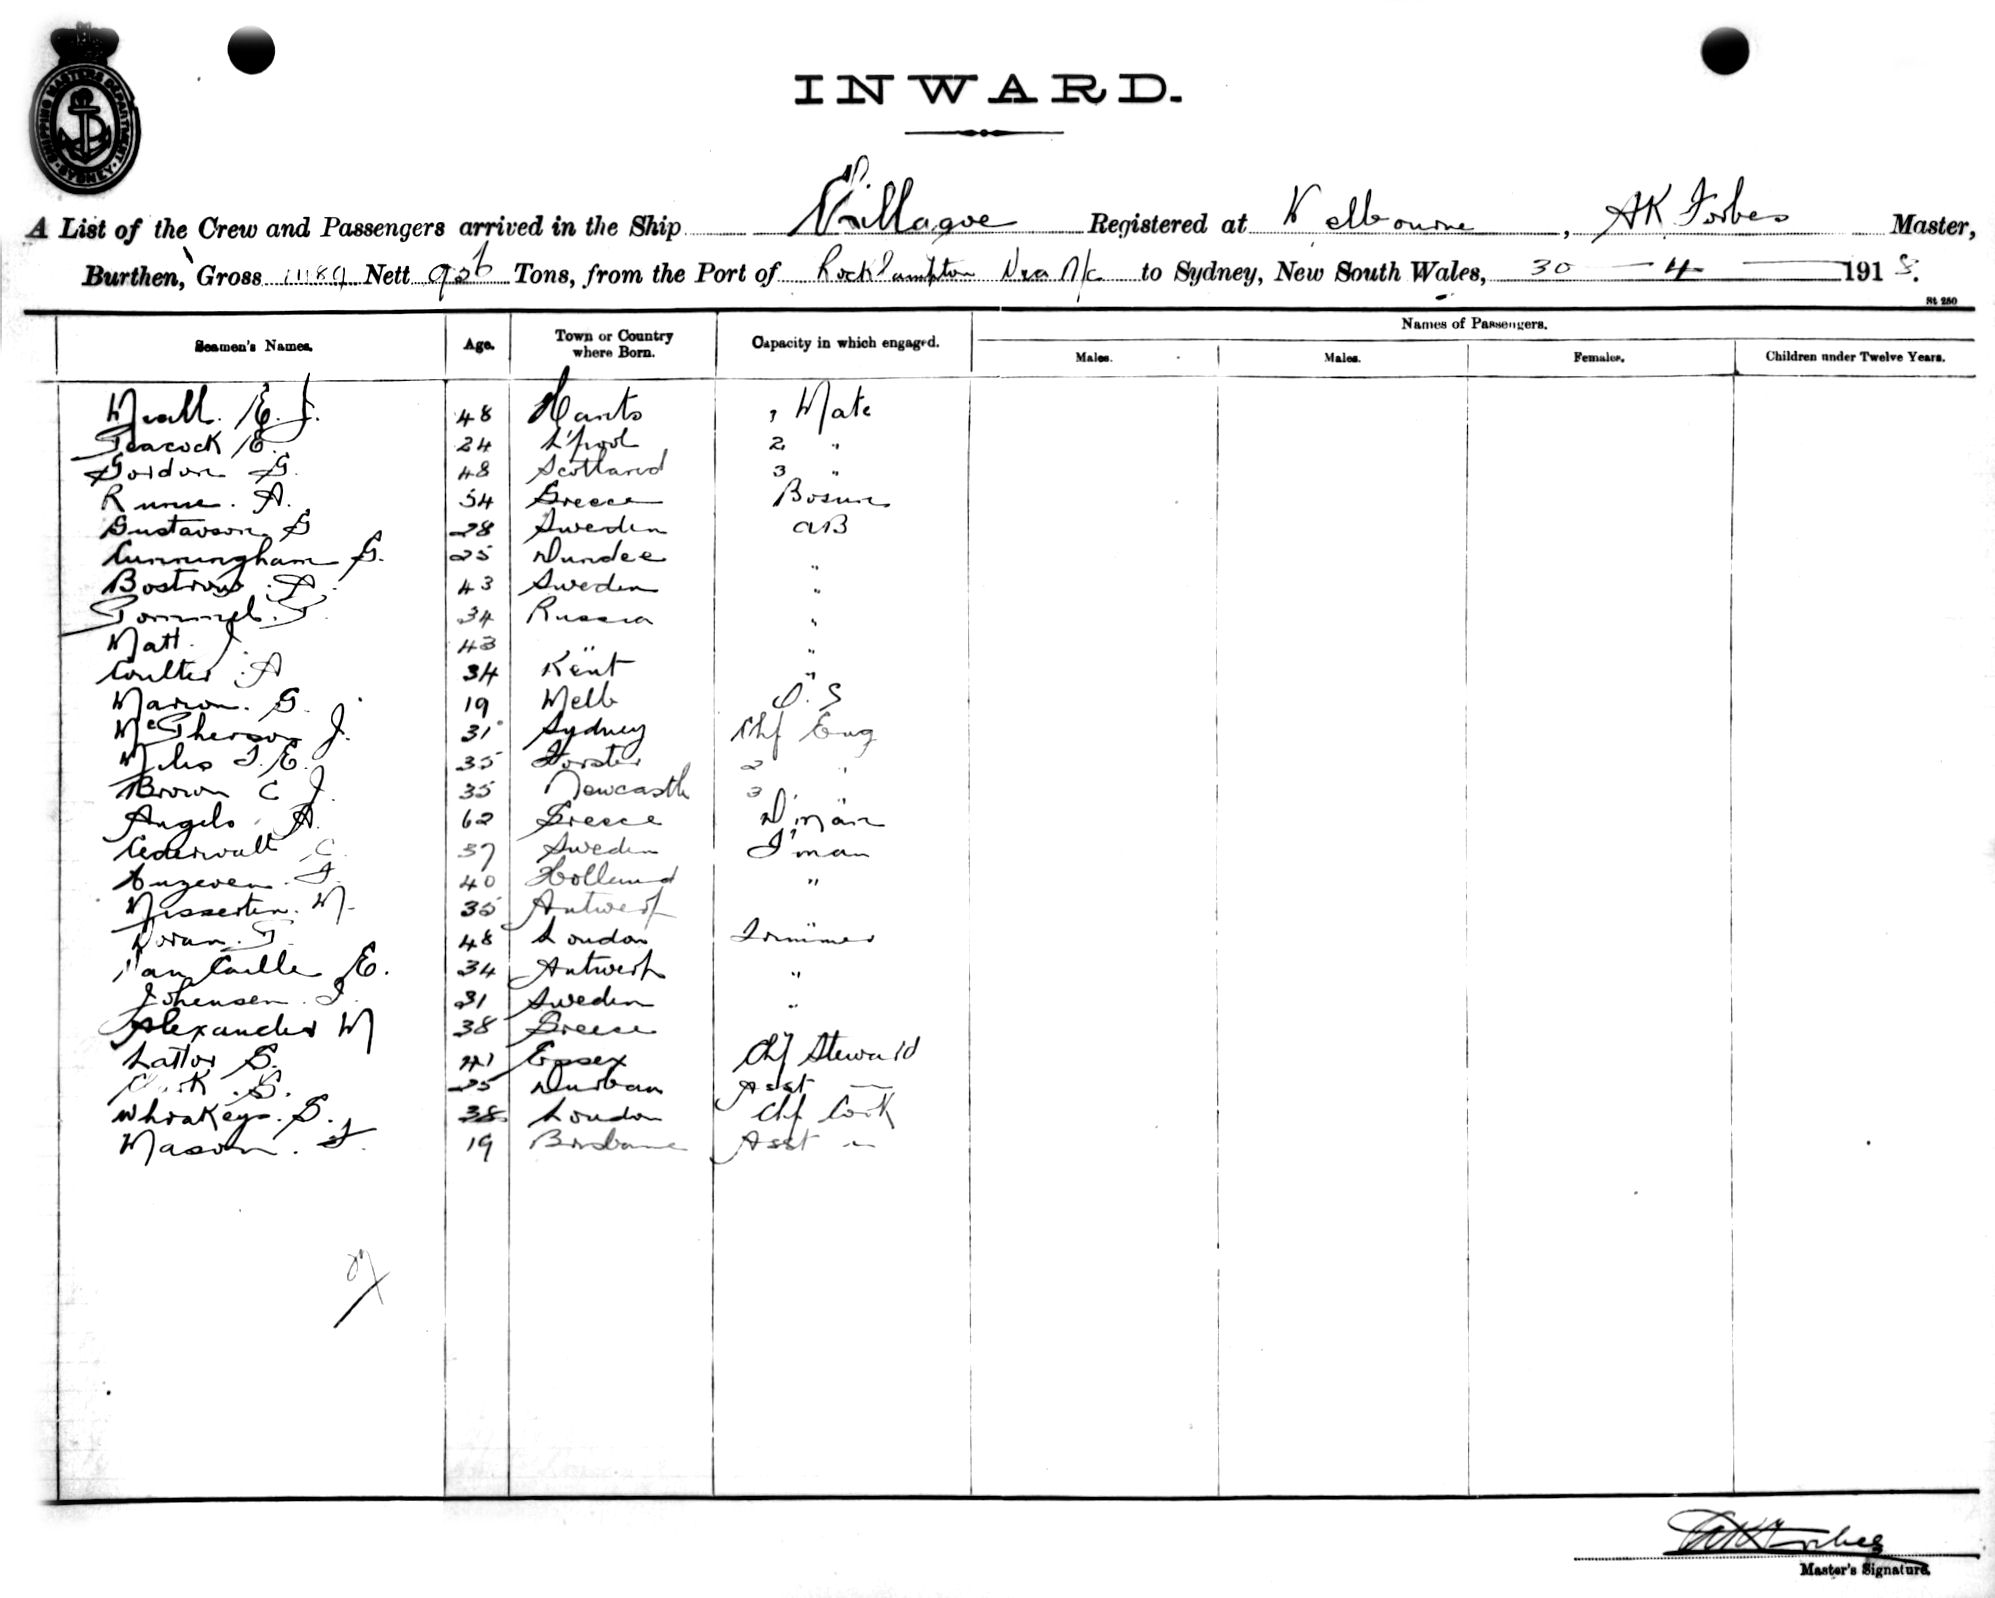 SHIPPING MASTERS DEPARTMENT SYDNEY
INWARD.
A List of the Crew and Passengers arrived in the Ship Registered at Melbourne, AK Forbes Master,
Burthen, Gross Nett 906 Tons, from the Port of Rockhampton to Sydney, New South Wales, 30 - 4 - 1918.
St 250
Seamen's Names. Age. Town or Country where Born. Capacity in which engaged. Names of Passengers.
Males. Males. Females. Children under Twelve Years.
E. J. 48 Hants 1 Mate
Peacock E. 24 L'pool 2 "
Gordon G. 48 Scotland 3 "
A. 54 Greece Bosun
Gustavson G 28 Sweden AB
Cunningham G. 25 Dundee "
Bostrom A. 43 Sweden "
34 Russia "
Matt J. 43 " "
Coulter A 34 Kent "
Marion. G. 19 Melb O. S
McPherson J. 31 Sydney Chf Eng
Miles F. E. 35 Forster 2 "
Brown C J. 35 Newcastle 3 "
Angelo A. 62 Greece D'man
Cederwall C 37 Sweden F'man
40 Holland "
M. 35 Antwerp
Doran. T. 48 London Trimmer
Van Caille E. 34 Antwerp "
Johensen. 31 Sweden "
Alexander M 38 Greece "
Lattor S. 41 Essex Chf Steward
S. 25 Durban Asst —
S. 38 London Chf Cook
Mason. F. 19 Brisbane Asst "
AK Forbes
Master's Signature.